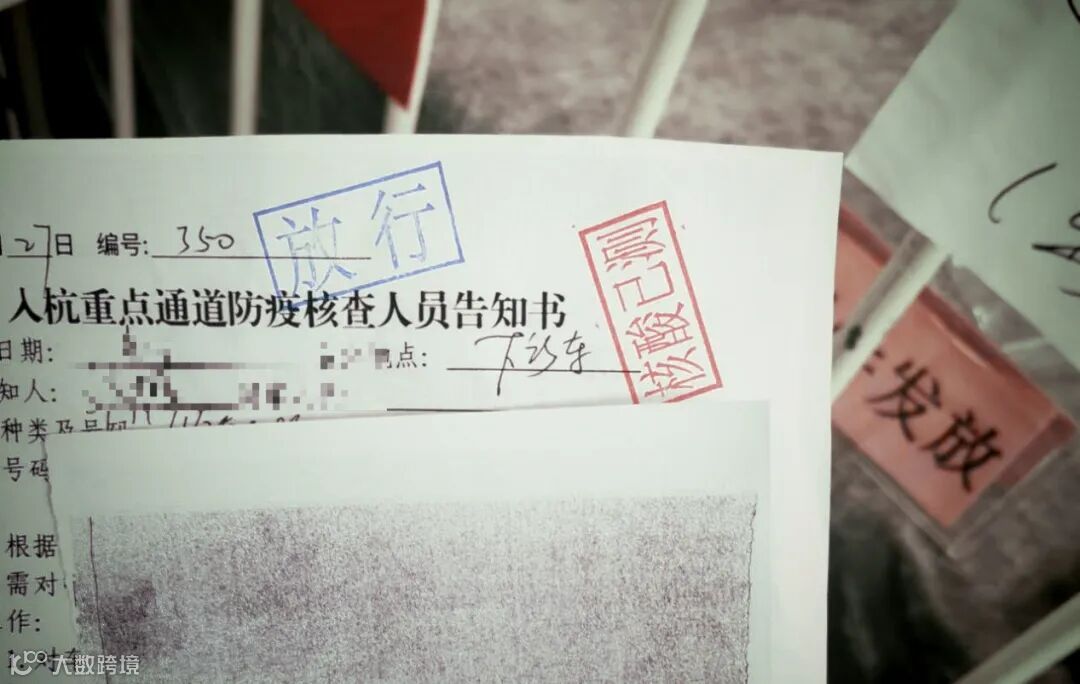 放行
27日 编号: 350
核酸已测
入杭重点通道防疫核查人员告知书
日期:
点: 下沙东
知人:
种类及号码
号码
根据
需对
作:
对车
发放
大数跨境